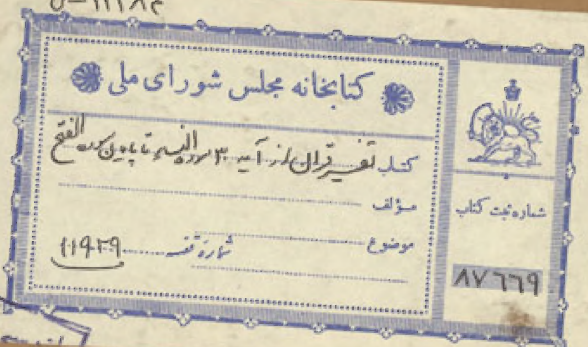 کتابخانه مجلس شورای ملی
کتاب تفسیر قرآن از آیه ۳۰ سوره تا پایان سوره الفتح
مؤلف
موضوع
شماره قفسه ۱۱۹۲۹
شماره ثبت کتاب
۸۷۶۶۹